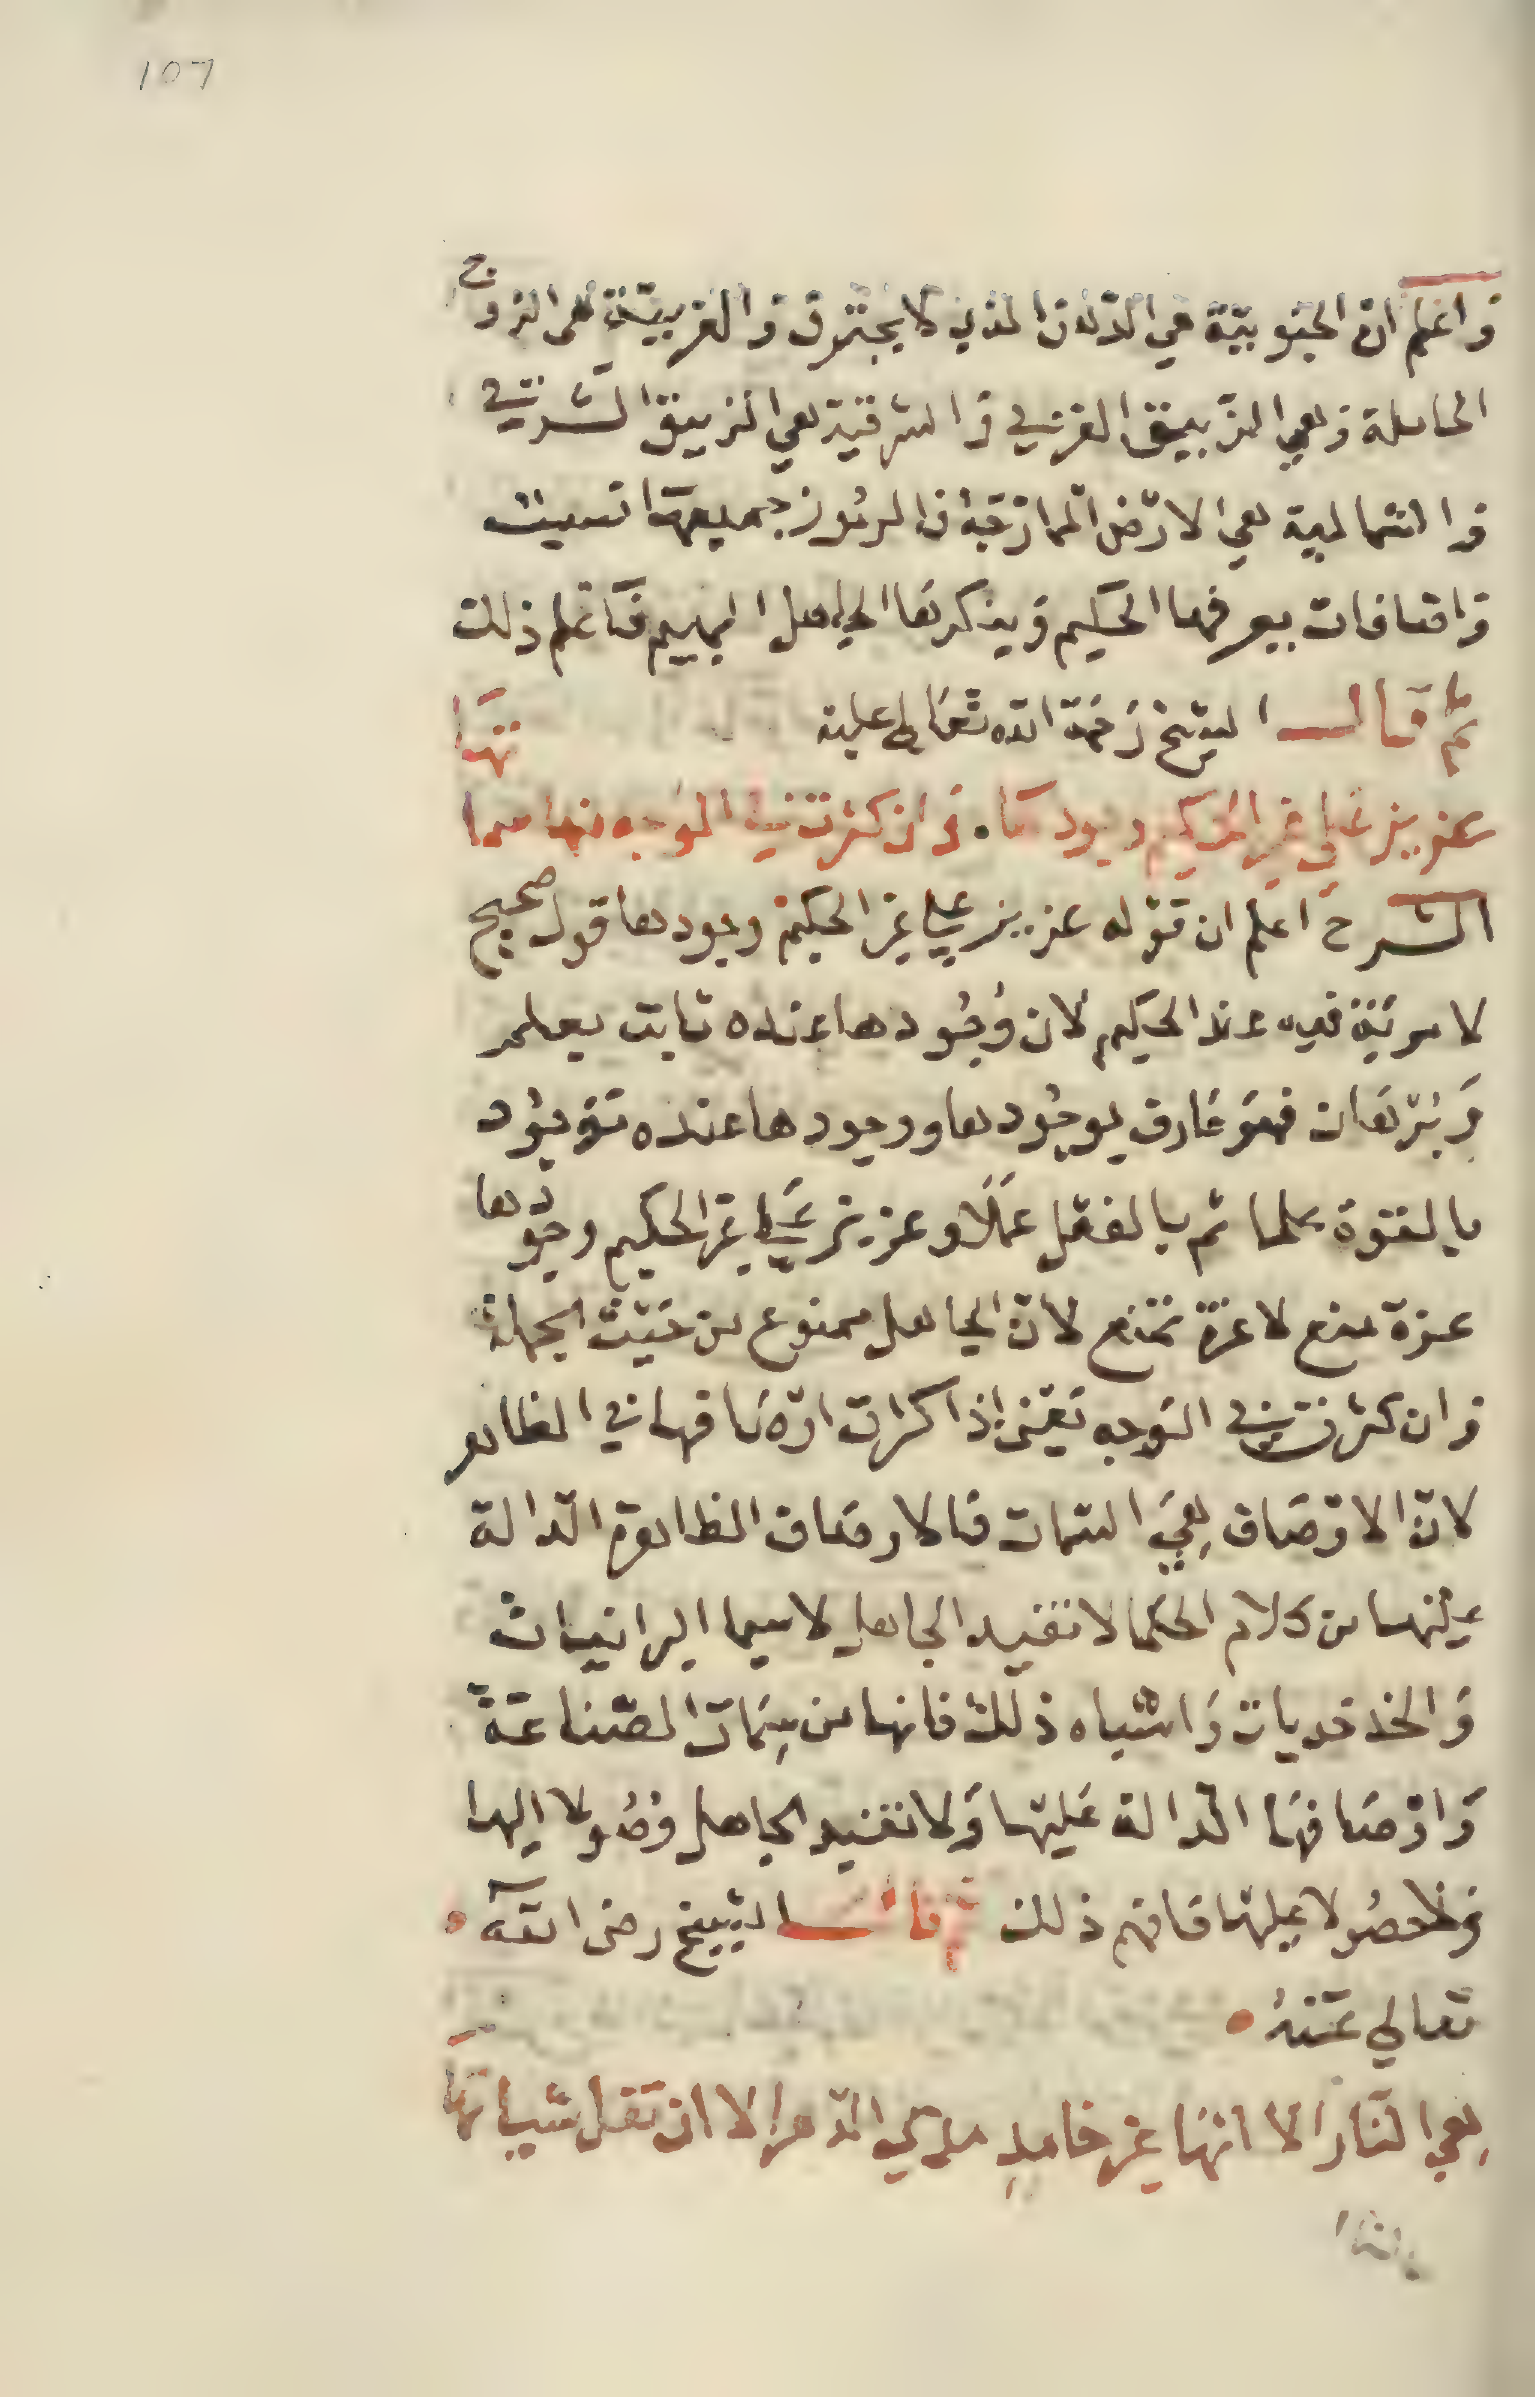 107
واعلم ان الجنوبية هي الدهن الذي لا يحترق والغربية هي الروح
الحاملة وهي الزيبق الغربي والشرقية هي الزيبق الشرقي
والشمالية هي الارض المازجة والرموز جميعها نسب
واضافات يعرفها الحكيم وينكرها الجاهل البهيم فاعلم ذلك
ثم قال الشيخ رحمة الله تعالى عليه
عزيز على غير الحكيم وجودها وان كثرت في الوجه منها
الشرح اعلم ان قوله عزيز على غير الحكيم وجودها قول صحيح
لا مرية فيه عند الحكيم لان وجودها عنده ثابت بعلم
وبرهان فهو عارف بوجودها ووجودها عنده موجود
بالقوة علما ثم بالفعل عملا وعزيز على غير الحكيم وجودها
عزة منع لا عزة تمنع لان الجاهل ممنوع من حيث الجهل
وان كثرت في الوجه يعني اذا كثرت اوصافها في الظاهر
لان الاوصاف هي السمات فالاوصاف الظاهرة الدالة
عليها من كلام الحكما لا تفيد الجاهل لا سيما البرانيات
والخندقيات واشباه ذلك فانها من سمات الصناعة
واوصافها الدالة عليها ولا تفيد الجاهل وصولا اليها
ولا حصولا عليها فافهم ذلك ثم قال الشيخ رضي الله
تعالى عنه
هي النار الا انها غير خامد مدي الدهر الا ان تقل